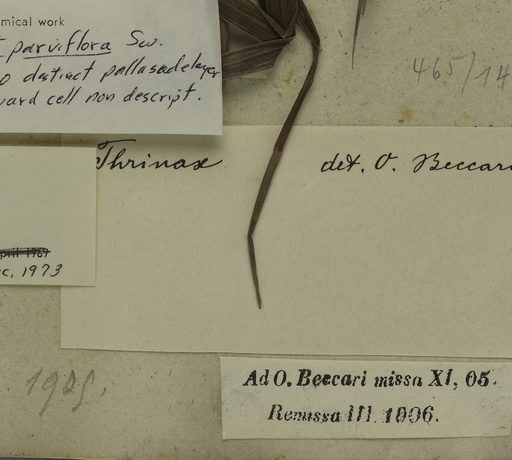 mical work
parviflora Sw.
distinct pallasade layer
guard cell non descript.
465/14
Thrinax det. O. Beccari
April 1969
c, 1973
1905.
Ad O. Beccari missa XI, 05.
Remissa III. 1906.